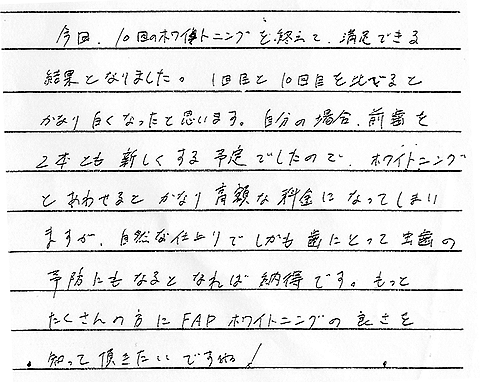 今回、10回のホワイトニングを終えて、満足できる
結果となりました。 1回目と10回目を比べると
かなり白くなったと思います。自分の場合、前歯を
2本とも新しくする予定でしたので、ホワイトニング
とあわせるとかなり高額な料金になってしまい
ますが、自然な仕上りでしかも歯にとって虫歯の
予防にもなるとなれば納得です。もっと
たくさんの方にFAPホワイトニングの良さを
知って頂きたいですね!